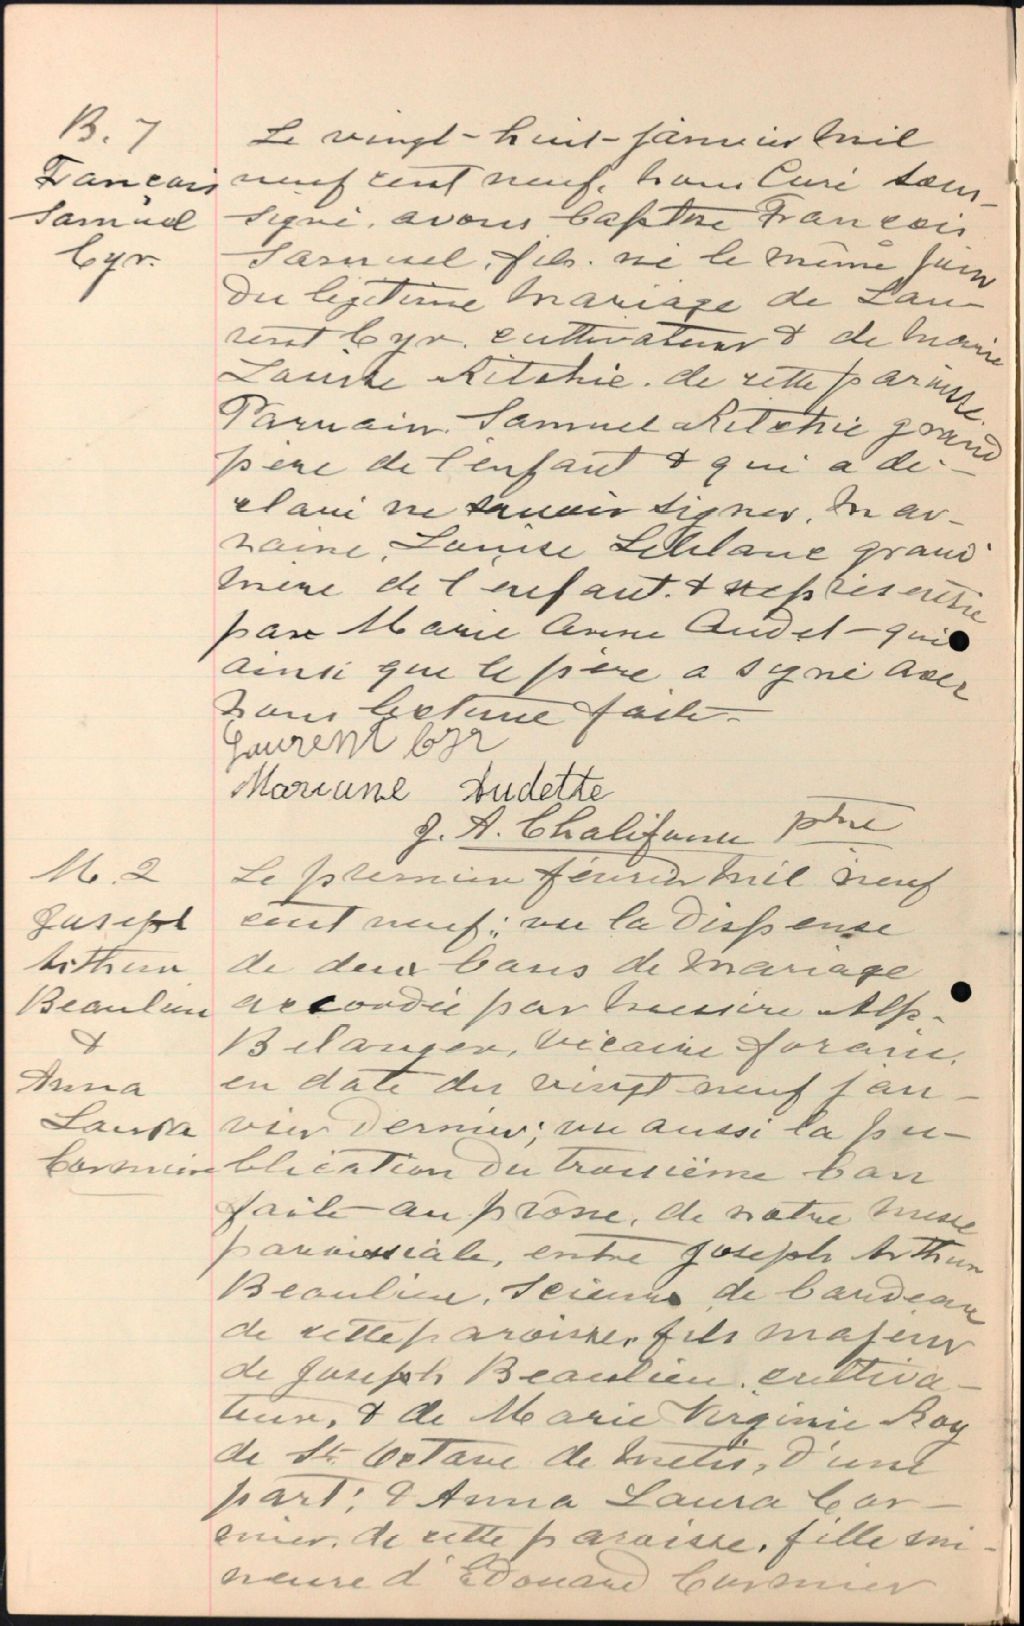 B. 7
François
Samuel
Cyr.
Le vingt-huit-janvier mil
neuf cent neuf, nous Curé sous-
signé, avons baptisé François
Samuel, fils né le même jour
du légitime mariage de Lau-
rent Cyr, cultivateur & de Marie
Louise Ritchie. de cette paroisse.
Parrain. Samuel Ritchie grand
père de l'enfant & qui a dé-
claré ne savoir signer. Mar-
raine, Louise Leblanc grand
mère de l'enfant. & représentée
par Marie Anne Audet-qui
ainsi que le père a signé avec
nous lecture faite-
Laurent Cyr
Mariane Audette
J. A. Chalifour ptre
M. 2
Joseph
Arthur
Beaulieu
&
Anna
Laura
Cormier
Le premier février mil neuf
cent neuf; vu la dispense
de deux bans de mariage
accordée par messire Alp.
Belanger, Vicaire forain,
en date du vingt neuf jan-
vier dernier; vu aussi la pu-
blication du troisième ban
faite au prône, de notre messe
paroissiale, entre Joseph Arthur
Beaulieu, scieur de bardeau
de cette paroisse, fils majeur
de Joseph Beaulieu, cultiva-
teur, & de Marie Virginie Roy
de St. Octave de Metis, d'une
part; & Anna Laura Cor-
mier, de cette paroisse, fille mi-
neure d'Edouard Cormier